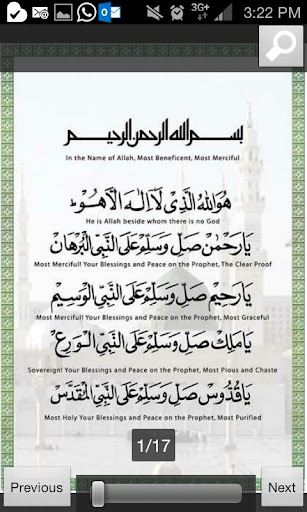 3G+ 3:22 PM
بسم الله الرحمن الرحيم
In the Name of Allah, Most Beneficent, Most Merciful
هُوَ اللهُ الَّذِي لَا إِلٰهَ إِلَّا هُوَ ط
He is Allah beside whom there is no God
يَا رَحْمٰنُ صَلِّ وَسَلِّمْ عَلَى النَّبِيِّ الْبُرْهَانِ
Most Merciful! Your Blessings and Peace on the Prophet, The Clear Proof
يَا رَحِيمُ صَلِّ وَسَلِّمْ عَلَى النَّبِيِّ الْوَسِيْمِ
Most Merciful! Your Blessings and Peace on the Prophet, Most Graceful
يَا مَلِكُ صَلِّ وَسَلِّمْ عَلَى النَّبِيِّ الْوَرِعِ
Sovereign! Your Blessings and Peace on the Prophet, Most Pious and Chaste
يَا قُدُّوْسُ صَلِّ وَسَلِّمْ عَلَى النَّبِيِّ الْمُقَدَّسِ
Most Holy Your Blessings and Peace on the Prophet, Most Purified
1/17
Previous Next